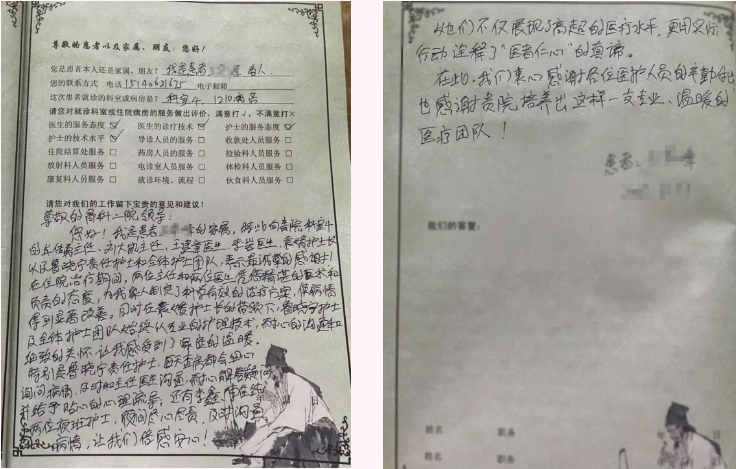 尊敬的患者以及家属、朋友:您好!
您是患者本人还是家属、朋友? 我是患者 本人
您的联系方式 电话 电子邮箱
这次患者就诊的科室或病房是? 科室4 1210病房
请您对就诊科室或住院病房的服务做出评价,满意打√,不满意打×
医生的服务态度 ☑ 医生的诊疗技术 ☑ 护士的服务态度 ☑
护士的技术水平 ☑ 导诊人员的服务 □ 收款处人员服务 □
住院结算处服务 □ 药房人员的服务 □ 检验科人员服务 □
放射科人员服务 □ 电诊室人员服务 □ 体检科人员服务 □
康复科人员服务 □ 就诊环境、流程 □ 伙食科人员服务 □
请您对我们的工作留下宝贵的意见和建议!
尊敬的骨科二院领导:
您好!我是患者 的家属,特此向贵院科室4
的 主任、刘大 主任、王 医生、李岩医生、袁 护士长
以及鲁晓宁责任护士和全体护士团队,表示最诚挚的感谢!
在住院治疗期间,两位主任和两位医生凭借精湛的医术和
负责的态度,为我家人制定了科学有效的治疗方案,使病情
得到显著改善。同时在袁 护士长的带领下,鲁晓宁护士
及全体护士团队人始终以专业的护理技术,耐心的沟通和
细致的关怀,让我感受到了家庭的温暖。
特别是鲁晓宁责任护士,每天查病都会细心
询问病情,及时和主任医生沟通,耐心解答疑问
并给予贴心的心理疏导,还有李鑫、
两位夜班护士,夜间尽心尽责,及时沟通
病情,让我们倍感安心!
他们不仅展现了高超的医疗水平,更用实际
行动诠释了“医者仁心”的真谛。
在此,我们衷心感谢各位医护人员的辛勤付出
也感谢贵院培养出这样一支专业、温暖的
医疗团队!
患者:
我们的答复:
姓名 职务 年 月 日
姓名 职务 年